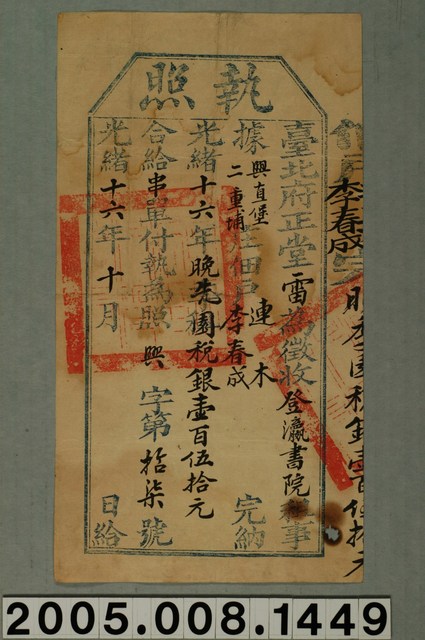 執照
臺北府正堂雷為徵收登瀛書院租事
據興直堡二重埔庄佃戶連木李春成完納
光緒十六年晚冬園稅銀壹百伍拾元
合給串單付執為照興字第拾柒號
光緒十六年十月日給
李春成
園稅銀壹百伍拾元
2005.008.1449